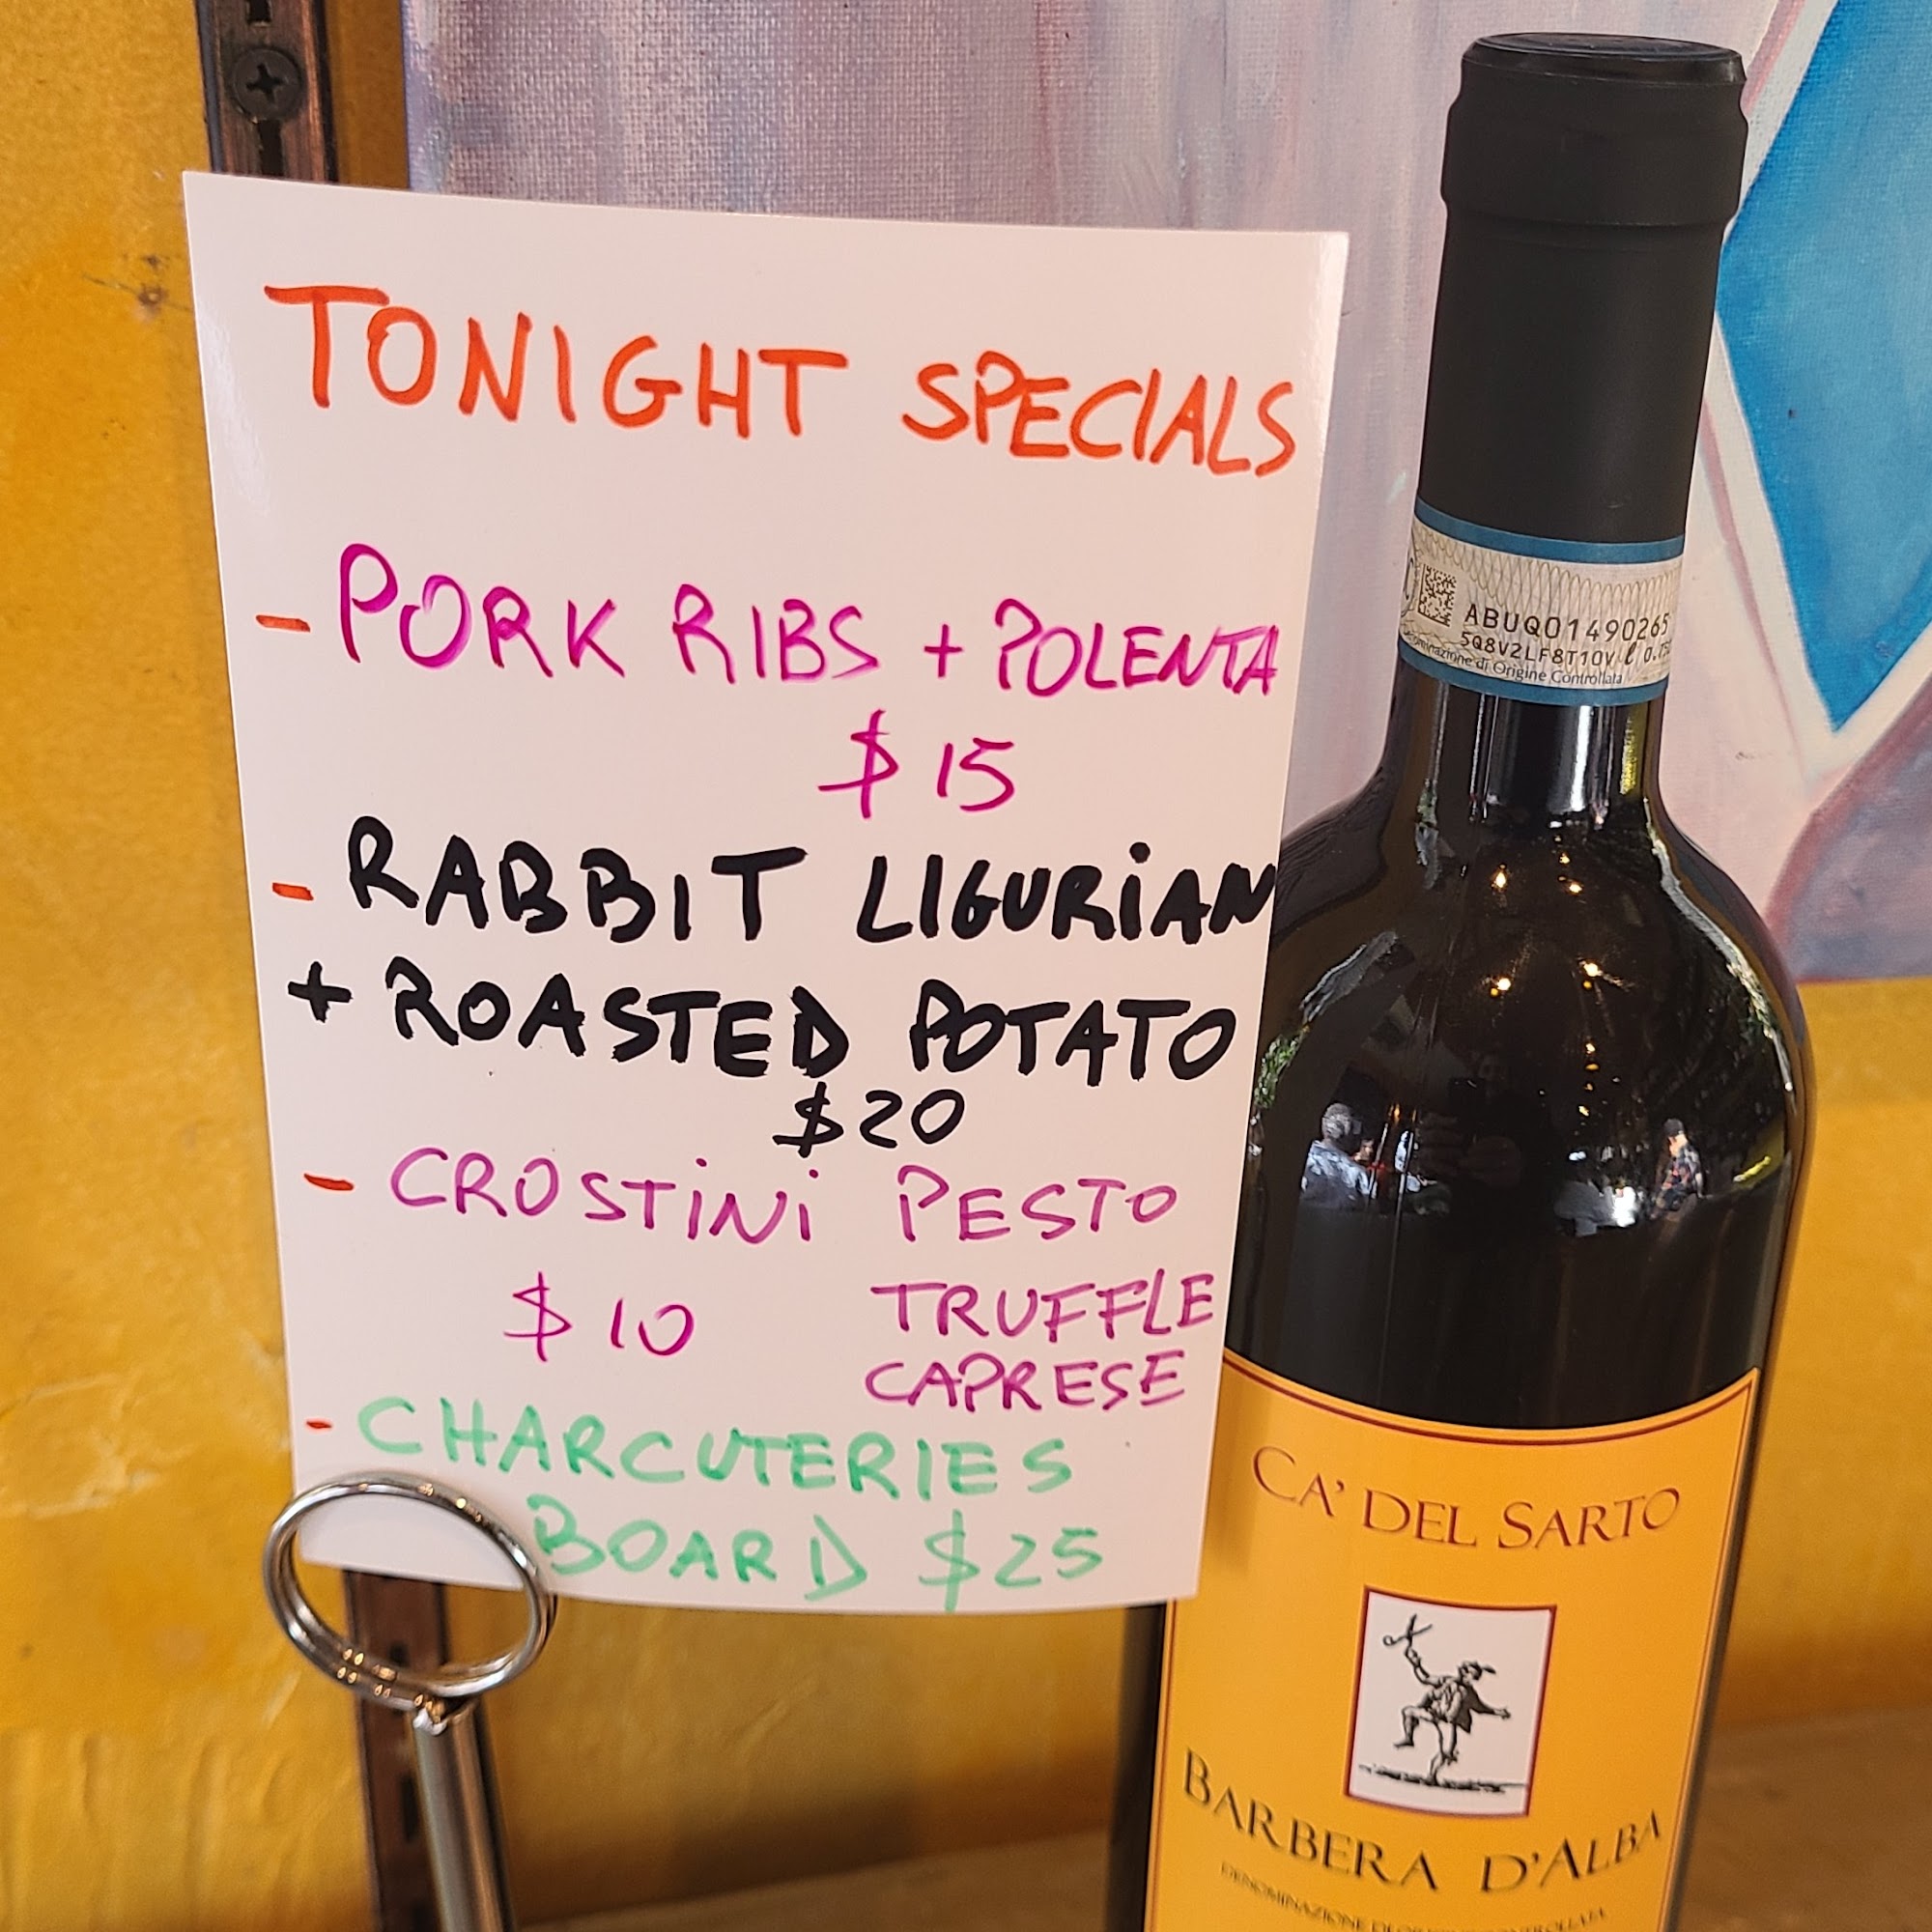 TONIGHT SPECIALS
- PORK RIBS + POLENTA
$15
- RABBIT LIGURIAN
+ ROASTED POTATO
$20
- CROSTINI PESTO
$10 TRUFFLE
CAPRESE
- CHARCUTERIES
BOARD $25
ABUQ01490265
5Q8V2LF8T10V ℓ
di Origine Controllata
CA' DEL SARTO
BARBERA D'ALBA
DENOMINAZIONE DI